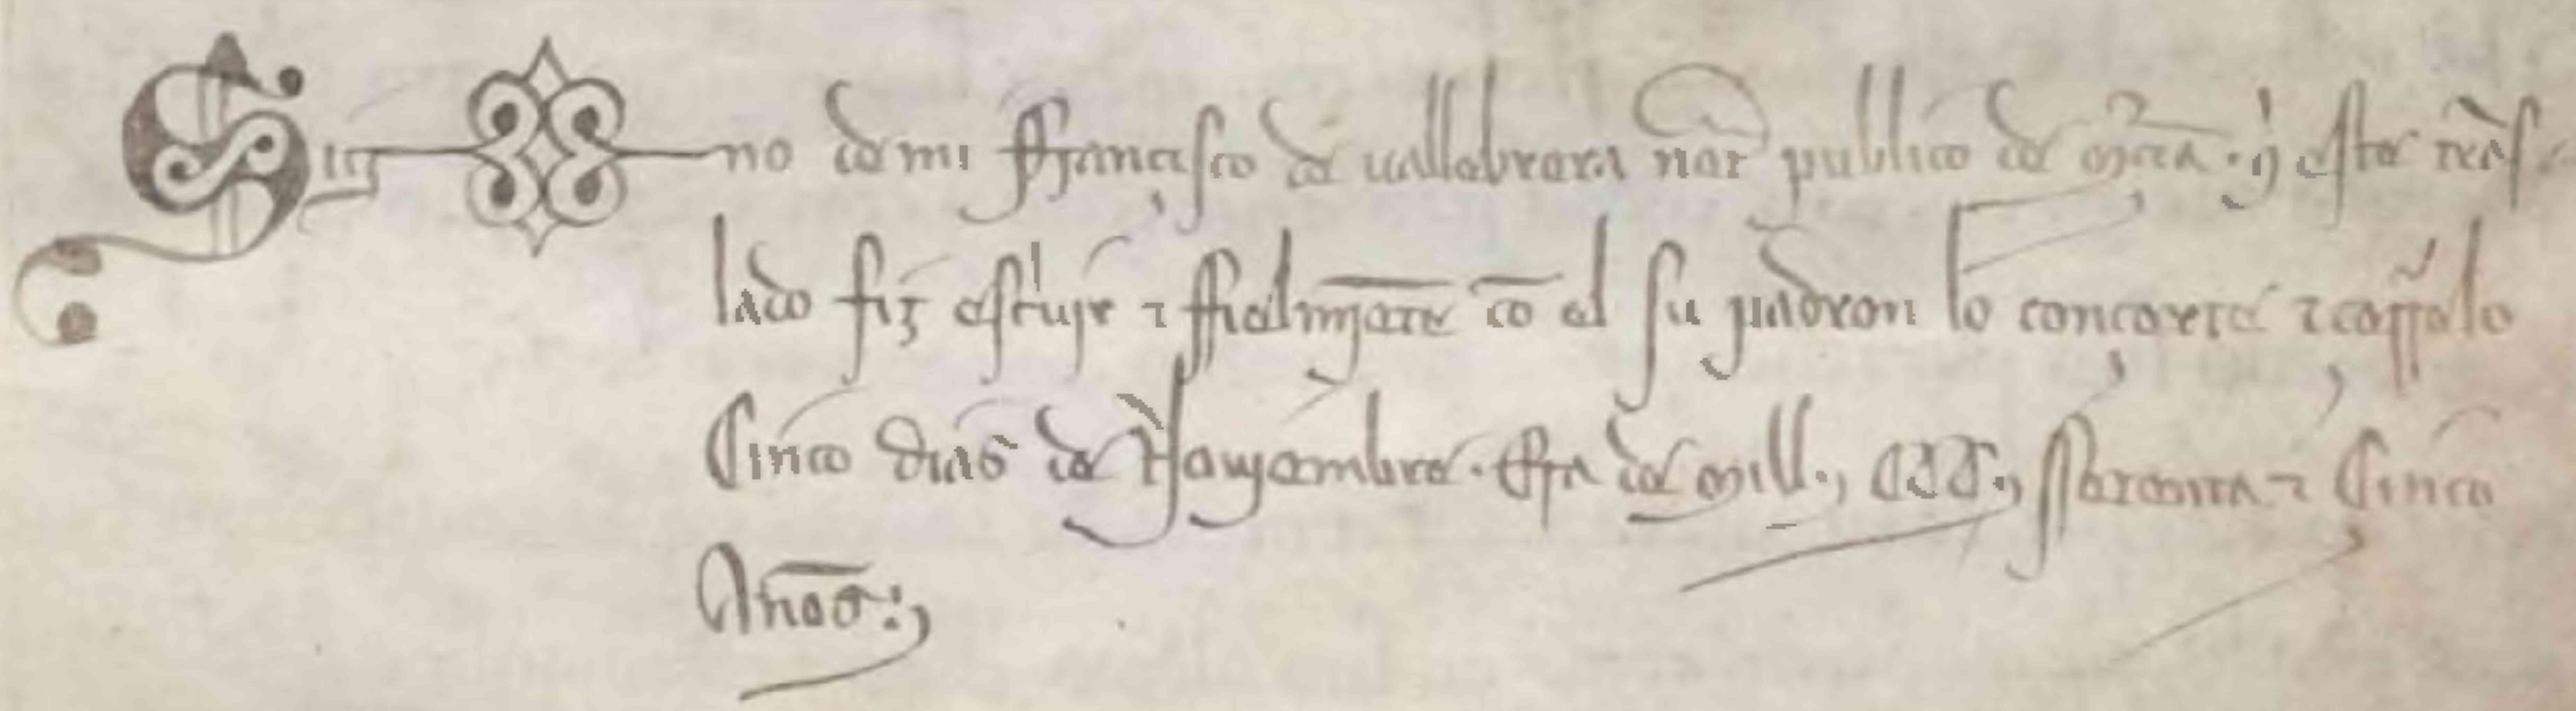 Sig no de mi ffrancisco de uallebrera nōt publico de Mᵃcia · q̇ este tras
lado fiz escⁱuir ⁊ ffielmēnte cō el su padron lo concerte ⁊ coꝑelo
Cinco dias de Nouyembre · Era de mill ., CCC ., ssetenta ⁊ Cinco
Annos :,